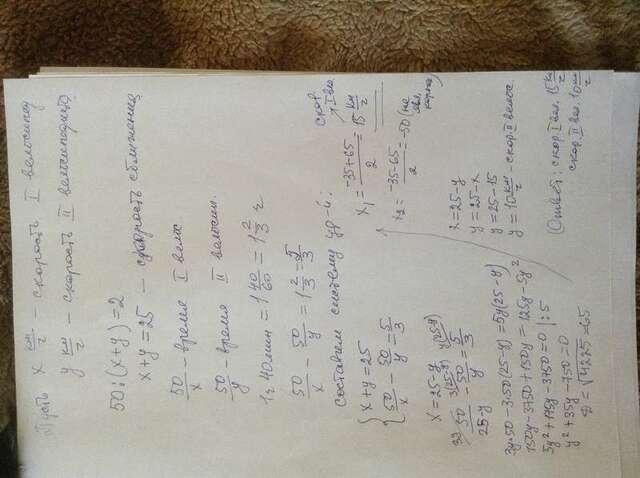 Пусть x км/ч - скорость I велосипед
y км/ч - скорость II велосипедиста
50:(x+y)=2
x+y=25 - скорость сближения
50/x - время I велос.
50/y - время II велосип.
1ч 40мин = 1 40/60 = 1 2/3 ч
50/x - 50/y = 1 2/3 = 5/3
Составим систему ур-й:
{ x+y=25
50/x - 50/y = 5/3
x=25-y
3y 3(25-y) y(25-y)
50/25-y - 50/y = 5/3
3y·50-3·50(25-y)=5y(25-y)
150y-3750+150y=125y-5y²
5y²+175y-3750=0 |:5
y²+35y-750=0
D=√4225=65
скор. I вел.
x₁ = -35+65/2 = 15 км/ч
x₂ = -35-65/2 = -50 (не явл. корнем)
x=25-y
y=25-x
y=25-15
y=10 км/ч - скор. II велос.
Ответ: скор. I вел. 15 км/ч
скор. II вел. 10 км/ч